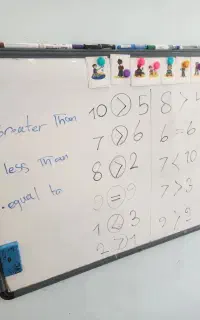 greater than
less than
equal to
10 > 5
7 > 6
8 > 2
9 = 9
1 < 3
2 > 1
8 > 4
6 = 6
7 < 10
7 > 3